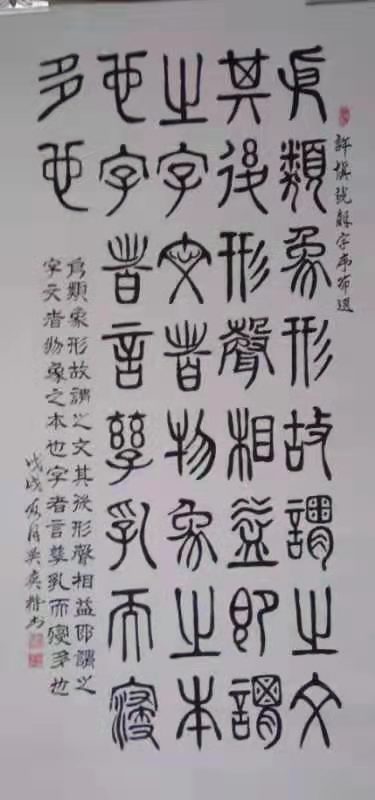 許慎說解字序選
類象形故謂之文
其後形聲相益即謂
之字文者物象之本
也字者言孳乳而寖
多也
為類象形故謂之文其後形聲相益即謂之
字文者物象之本也字者言孳乳而寖多也
戊戌月吳